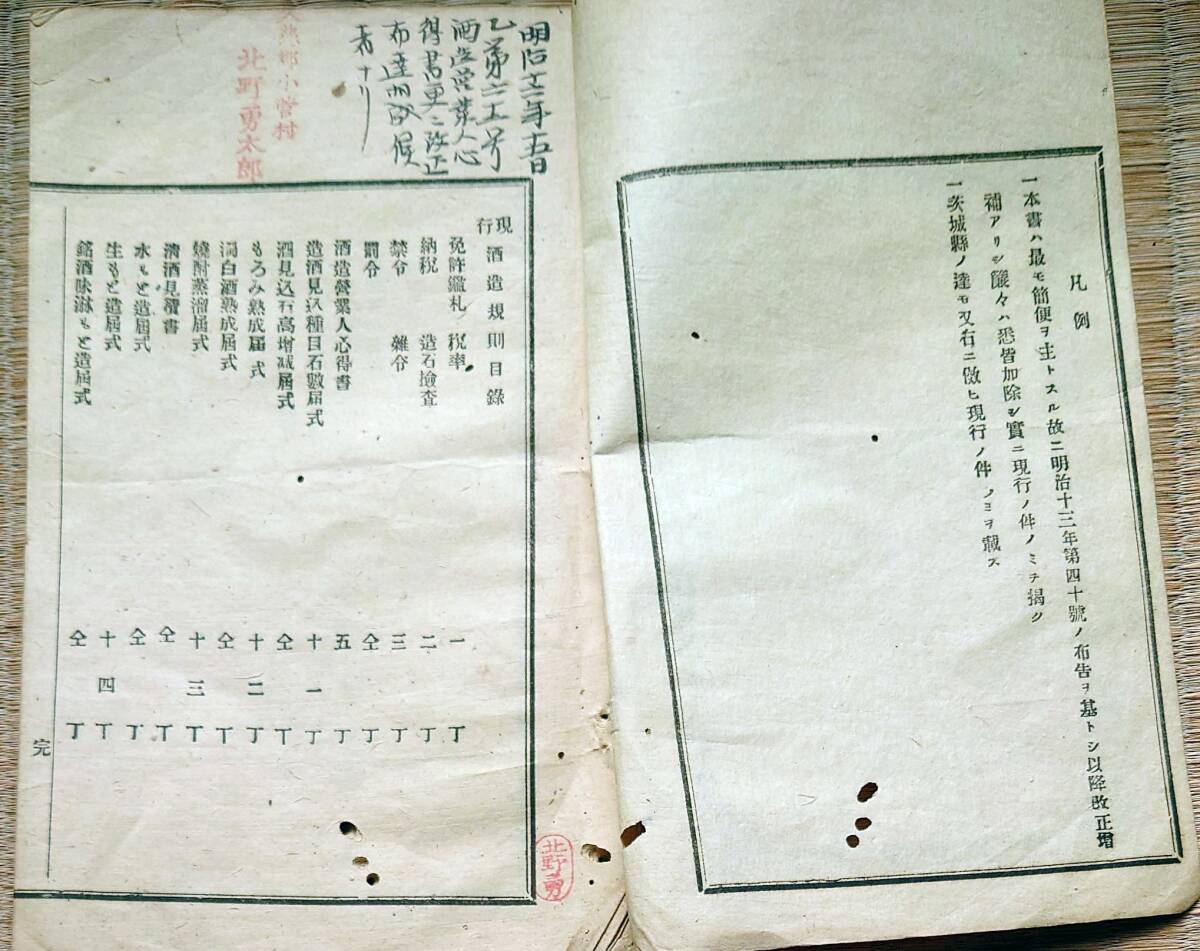 凡例
一本書ハ最モ簡便ヲ主トスル故ニ明治十三年第四十號ノ布告ヲ基トシ以降改正增
補アリシ廉々ハ悉皆加除シ實ニ現行ノ件ノミヲ揭ク
一茨城縣ノ達モ又右ニ倣ヒ現行ノ件ノミヲ載ス
明治
乙第六十五号
酒造営業人心
得書更ニ改正
布達相成候
者ナリ
郡小菅村
北野勇太郎
現行酒造規則目錄
免許鑑札 稅率 一丁
納稅 造石撿査 二丁
禁令 雜令 三丁
罰令 仝丁
酒造營業人心得書 五丁
造酒見込種目石數屆式 十一丁
酒見込石高增减屆式 仝丁
もろみ熟成屆式 十二丁
濁白酒熟成屆式 仝丁
燒酎蒸溜屆式 十三丁
淸酒見積書 仝丁
水もと造屆式 仝丁
生もと造屆式 十四丁
銘酒味淋もと造屆式 仝丁
完
北野勇